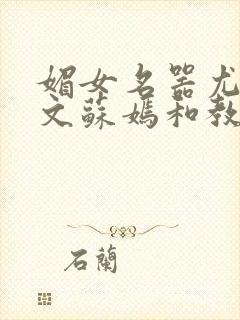 媚女名器尤
文蘇媽和教
石蘭